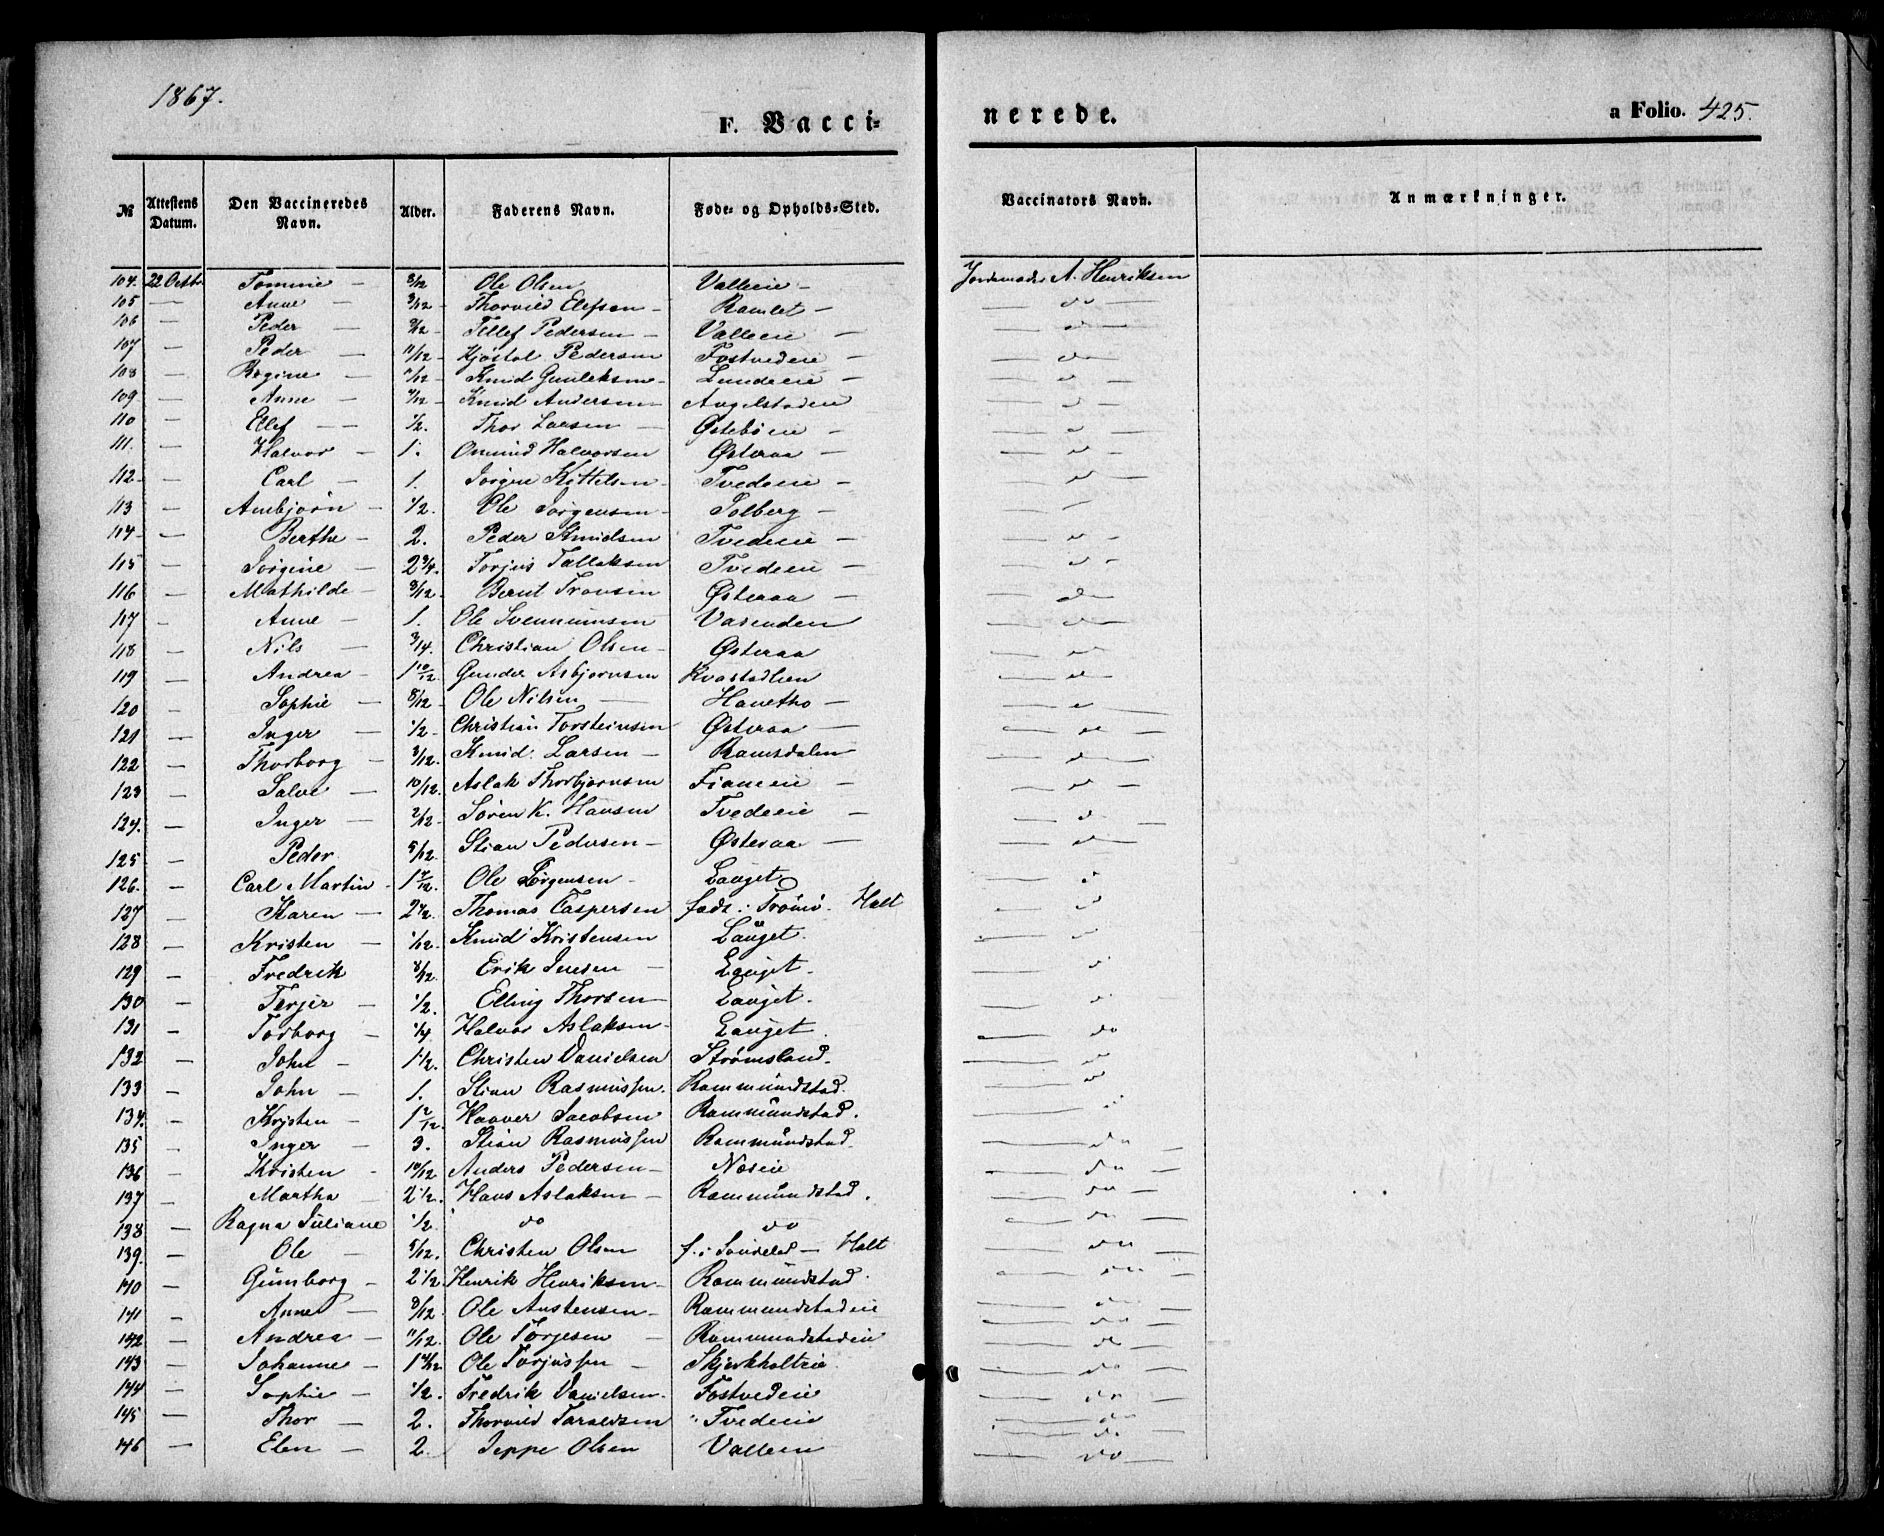 1867.
F. Vacci-
nerede.
a Folio. 425.
№ | Attestens Datum. | Den Vaccineredes Navn. | Alder. | Faderens Navn. | Føde- og Opholds-Sted. | Vaccinators Navn. | Anmærkninger.
104. | 22 Octb. | Tomine — | 8/12 | Ole Olsen | Valleeie — | A. Henriksen
105 | — | Anne — | 3/12 — | Thorvild Elefsen — | Ramlet — | do
106 | — | Peder — | 9/12 — | Tellef Pedersen — | Valleeie — | do
107 | — | Peder — | 11/12 — | Kjøstol Pedersen | Fostvedeie — | do
108 | — | Regine — | 11/12 — | Knud Gunleksen — | Lundeeie — | do
109 | — | Anne — | 4/12 — | Knud Andersen — | Angelstadeie | do
110 | — | Ellef — | 1/2. | Thor Larsen — | Østebøeie — | do
111. | — | Halvor — | 1. | Omund Halvorsen | Østeraa — | do
112 | — | Carl — | 1. | Jørgen Kittelsen — | Tvedeeie — | do
113 | — | Anbjørn — | 1/2. | Ole Jørgensen — | Solberg —
114 | — | Berthe — | 2. | Peder Knudsen | Tvedeeie — | do
115 | — | Jørgine — | 2 3/4. | Torjus Tallaksen | Tvedeeie — | do
116 | — | Mathilde — | 3/12 — | Bernt Tronsen | Østeraa — | do
117 | — | Anne — | 1. | Ole Svennumsen | Vasenden | do
118 | — | Nils — | 3/4. | Christian Olsen — | Østeraa | do
119 | — | Andrea — | 1 10/12 | Gunder Asbjørnsen | Kvastadlien | do
120 | — | Sophie — | 8/12 — | Ole Nilsen — | Havetho — | do
121 | — | Inger — | 1/2 — | Christian Torsteinsen | Østeraa — | do
122 | — | Thorborg — | 3/12. | Knud Larsen — | Ramsdalen | do
123 | — | Salve — | 10/12. | Aslak Thorbjørnsen | Fianeeie — | do
124. | — | Inger — | 2/12 | Søren K. Hansen | Tvedeeie — | do
125 | — | Peder | 5/12. | Stian Pedersen — | Østeraa — | do
126. | — | Carl Martin — | 1 7/12. | Ole Jørgensen — | Lauget | do
127 | — | Karen — | 2 1/2. | Thomas Caspersen | føds: Tromø. Holt | do
128 | — | Kristen — | 1/12. | Knud Kristensen | Lauget. | do
129 | — | Fredrik | 8/12. | Erik Jensen — | Lauget. | do
130 | — | Terjer — | 1/2. | Elling Thorsen — | Lauget. | do
131 | — | Torborg — | 1/4. | Halvor Aslaksen — | Lauget. | do
132 | — | John — | 1 1/2. | Christen Danielsen | Strømsland. | do
133 | — | John — | 1. | Stian Rasmussen. | Rommundstad. | do
134. | — | Kristen — | 1 2/12. | Haaver Jacobsen | Rommundstad. | do
135 | — | Inger — | 3. | Stian Rasmussen | Rommundstad. | do
136 | — | Kristen — | 10/12 | Anders Pedersen — | Næseie | do
137 | — | Martha — | 2 1/2. | Hans Aslaksen — | Rommundstad. | do
138 | — | Ragna Juliane | 1/2. | do | do | do
139. | — | Ole — | 5/12. | Christen Olsen | f. i Søndeled — Holt | do
140 | — | Gunborg — | 2 1/2 | Henrik Henriksen — | Rommundstad. | do
141 | — | Anne — | 8/12 — | Ole Austensen — | Rommundstadeie | do
142 | — | Andrea — | 11/12. | Ole Torjesen — | Rommundstadeie | do
143 | — | Johanne — | 1 4/12 | Ole Torjussen — | Skjerkholteie. | do
144 | — | Sophie — | 1/2. | Fredrik Danielsen. | Fostvedeie | do
145 | — | Thor — | 2. | Thorvild Taraldsen | Tvedeeie | do
146 | — | Elen — | 2 | Jeppe Olsen | Valleeie | do